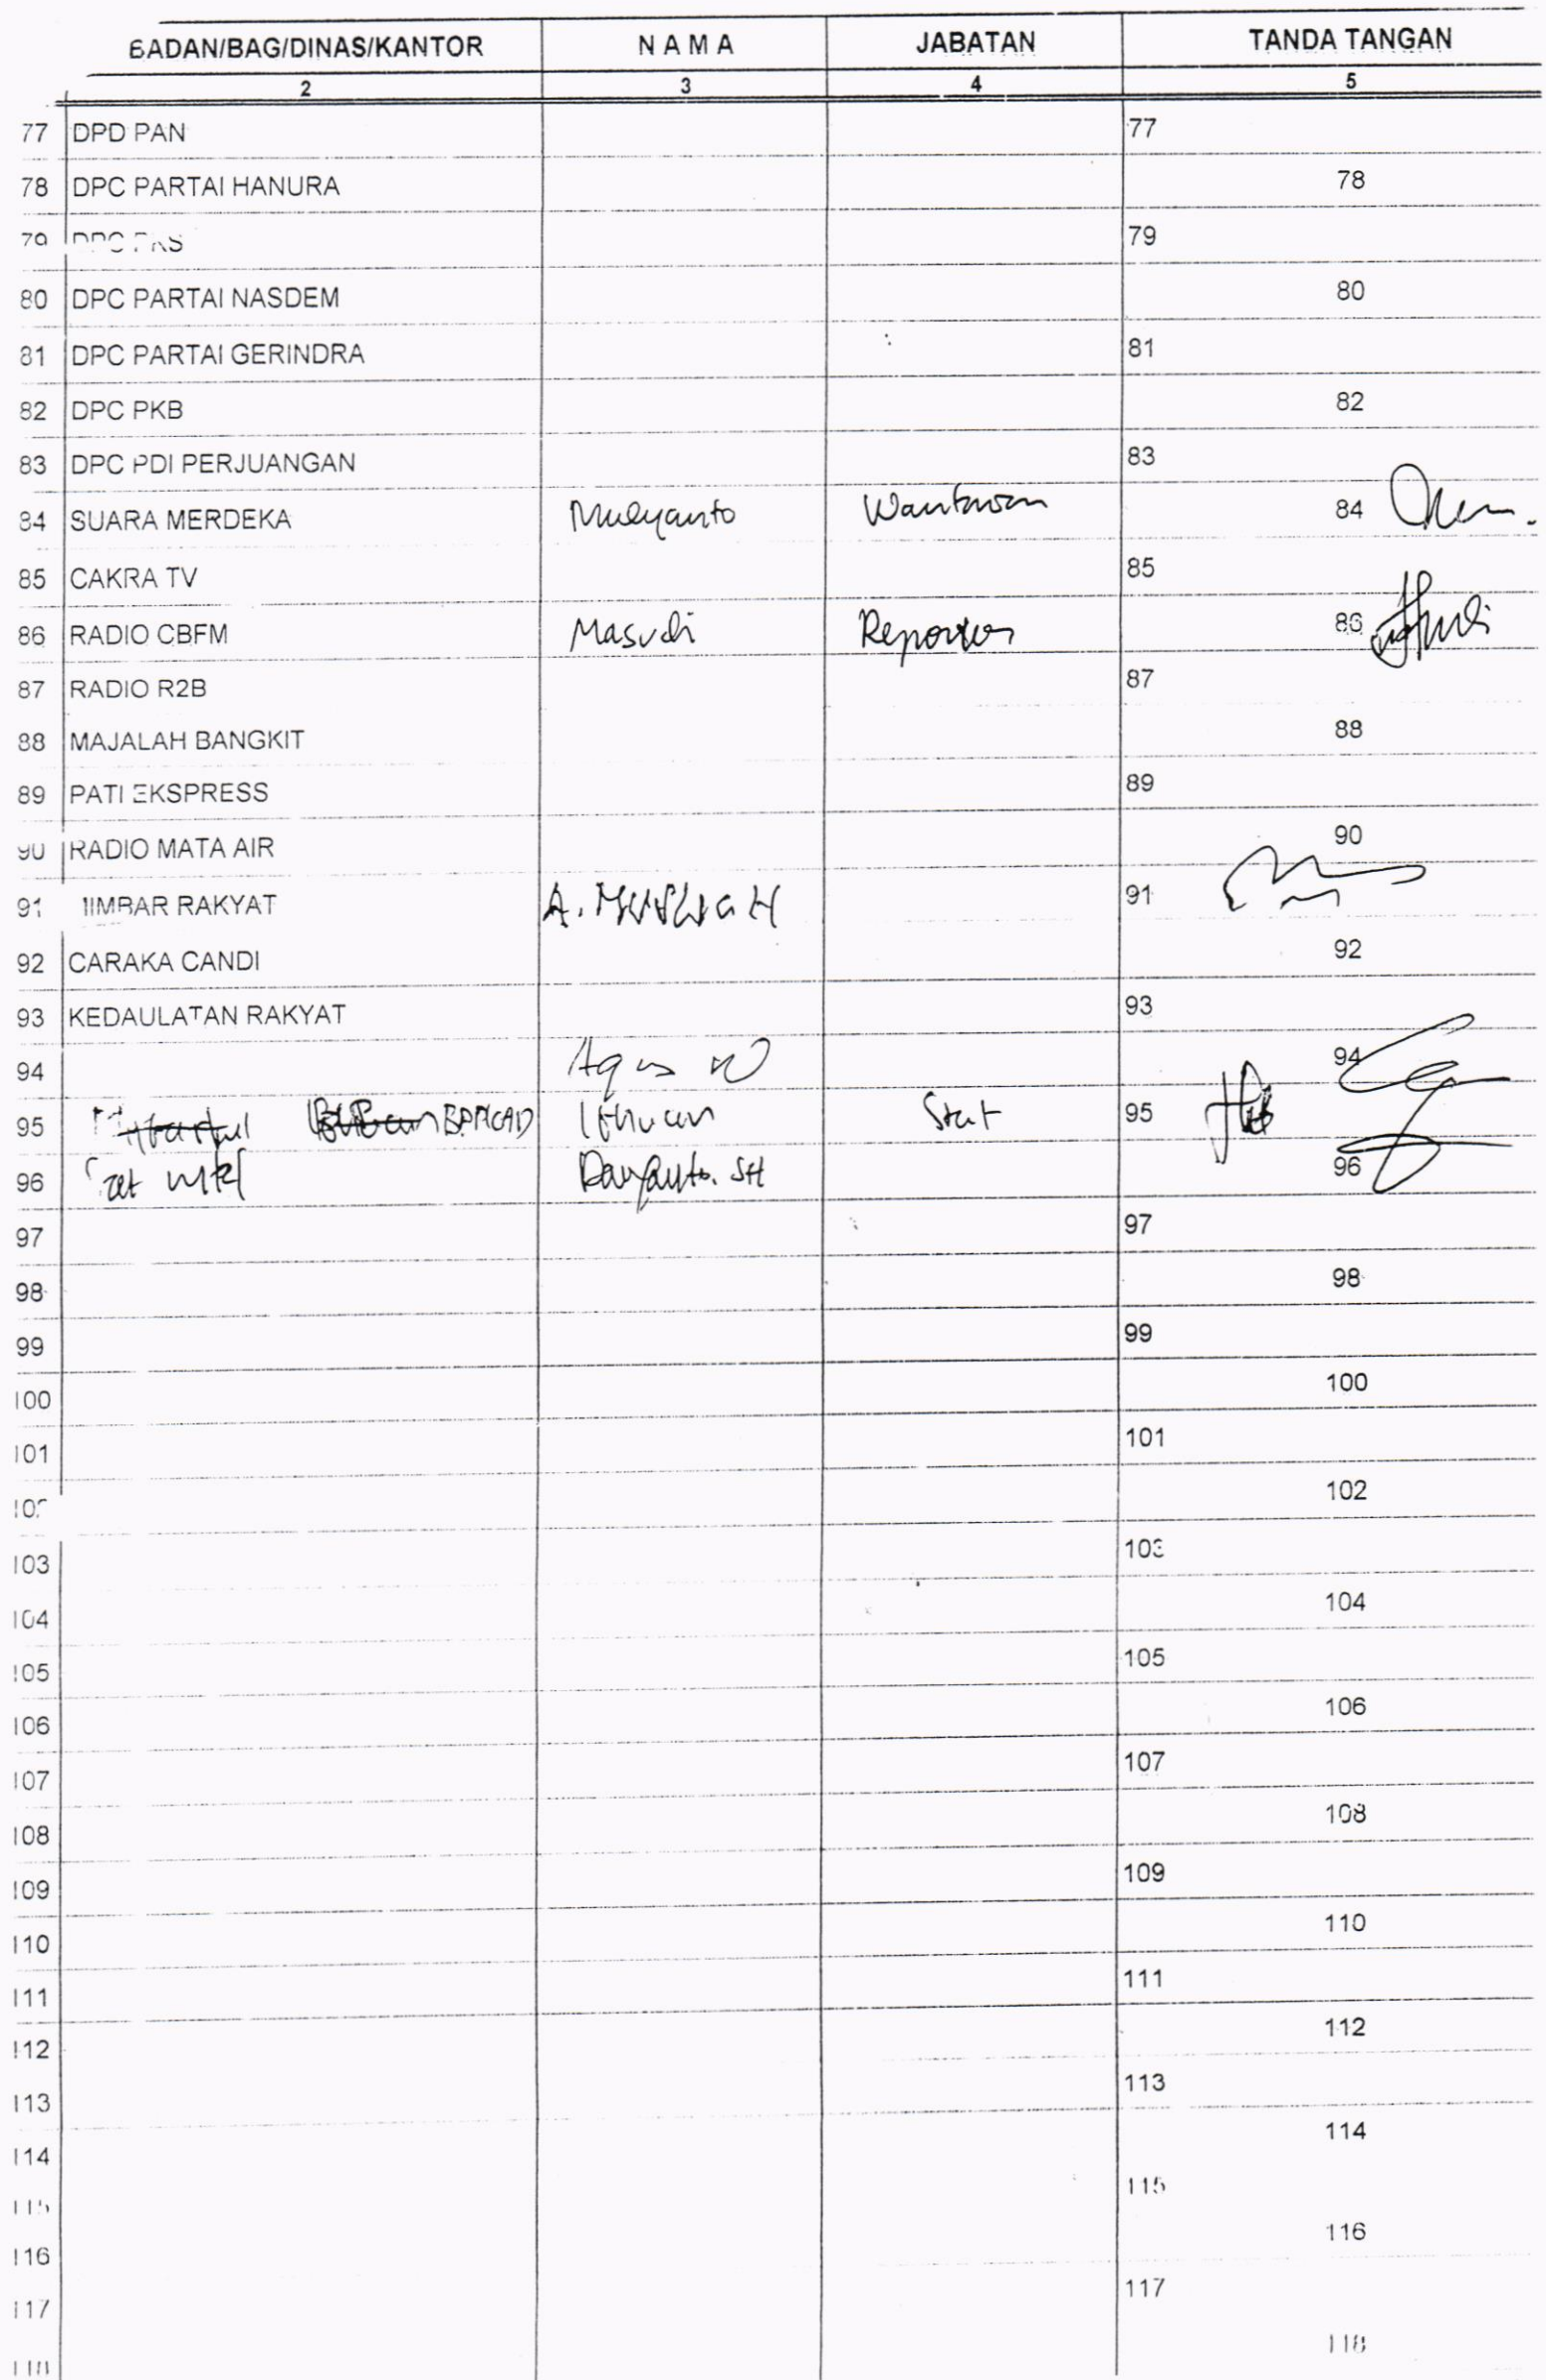 BADAN/BAG/DINAS/KANTOR NAMA JABATAN TANDA TANGAN
2 3 4 5
77 DPD PAN 77
78 DPC PARTAI HANURA 78
79 DPC PKS 79
80 DPC PARTAI NASDEM 80
81 DPC PARTAI GERINDRA 81
82 DPC PKB 82
83 DPC PDI PERJUANGAN 83
84 SUARA MERDEKA Mulyanto Wartawan 84
85 CAKRA TV 85
86 RADIO CBFM Masudi Reporter 86
87 RADIO R2B 87
88 MAJALAH BANGKIT 88
89 PATI EKSPRESS 89
90 RADIO MATA AIR 90
91 MIMBAR RAKYAT A. 91
92 CARAKA CANDI 92
93 KEDAULATAN RAKYAT 93
94 Agus W 94
95 Staf 95
96 Daryanto. SH 96
97 97
98 98
99 99
100 100
101 101
102 102
103 103
104 104
105 105
106 106
107 107
108 108
109 109
110 110
111 111
112 112
113 113
114 114
115 115
116 116
117 117
118 118